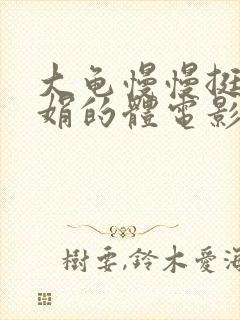 大龟慢慢挺
娟的體電影
樹要,鈴木愛海